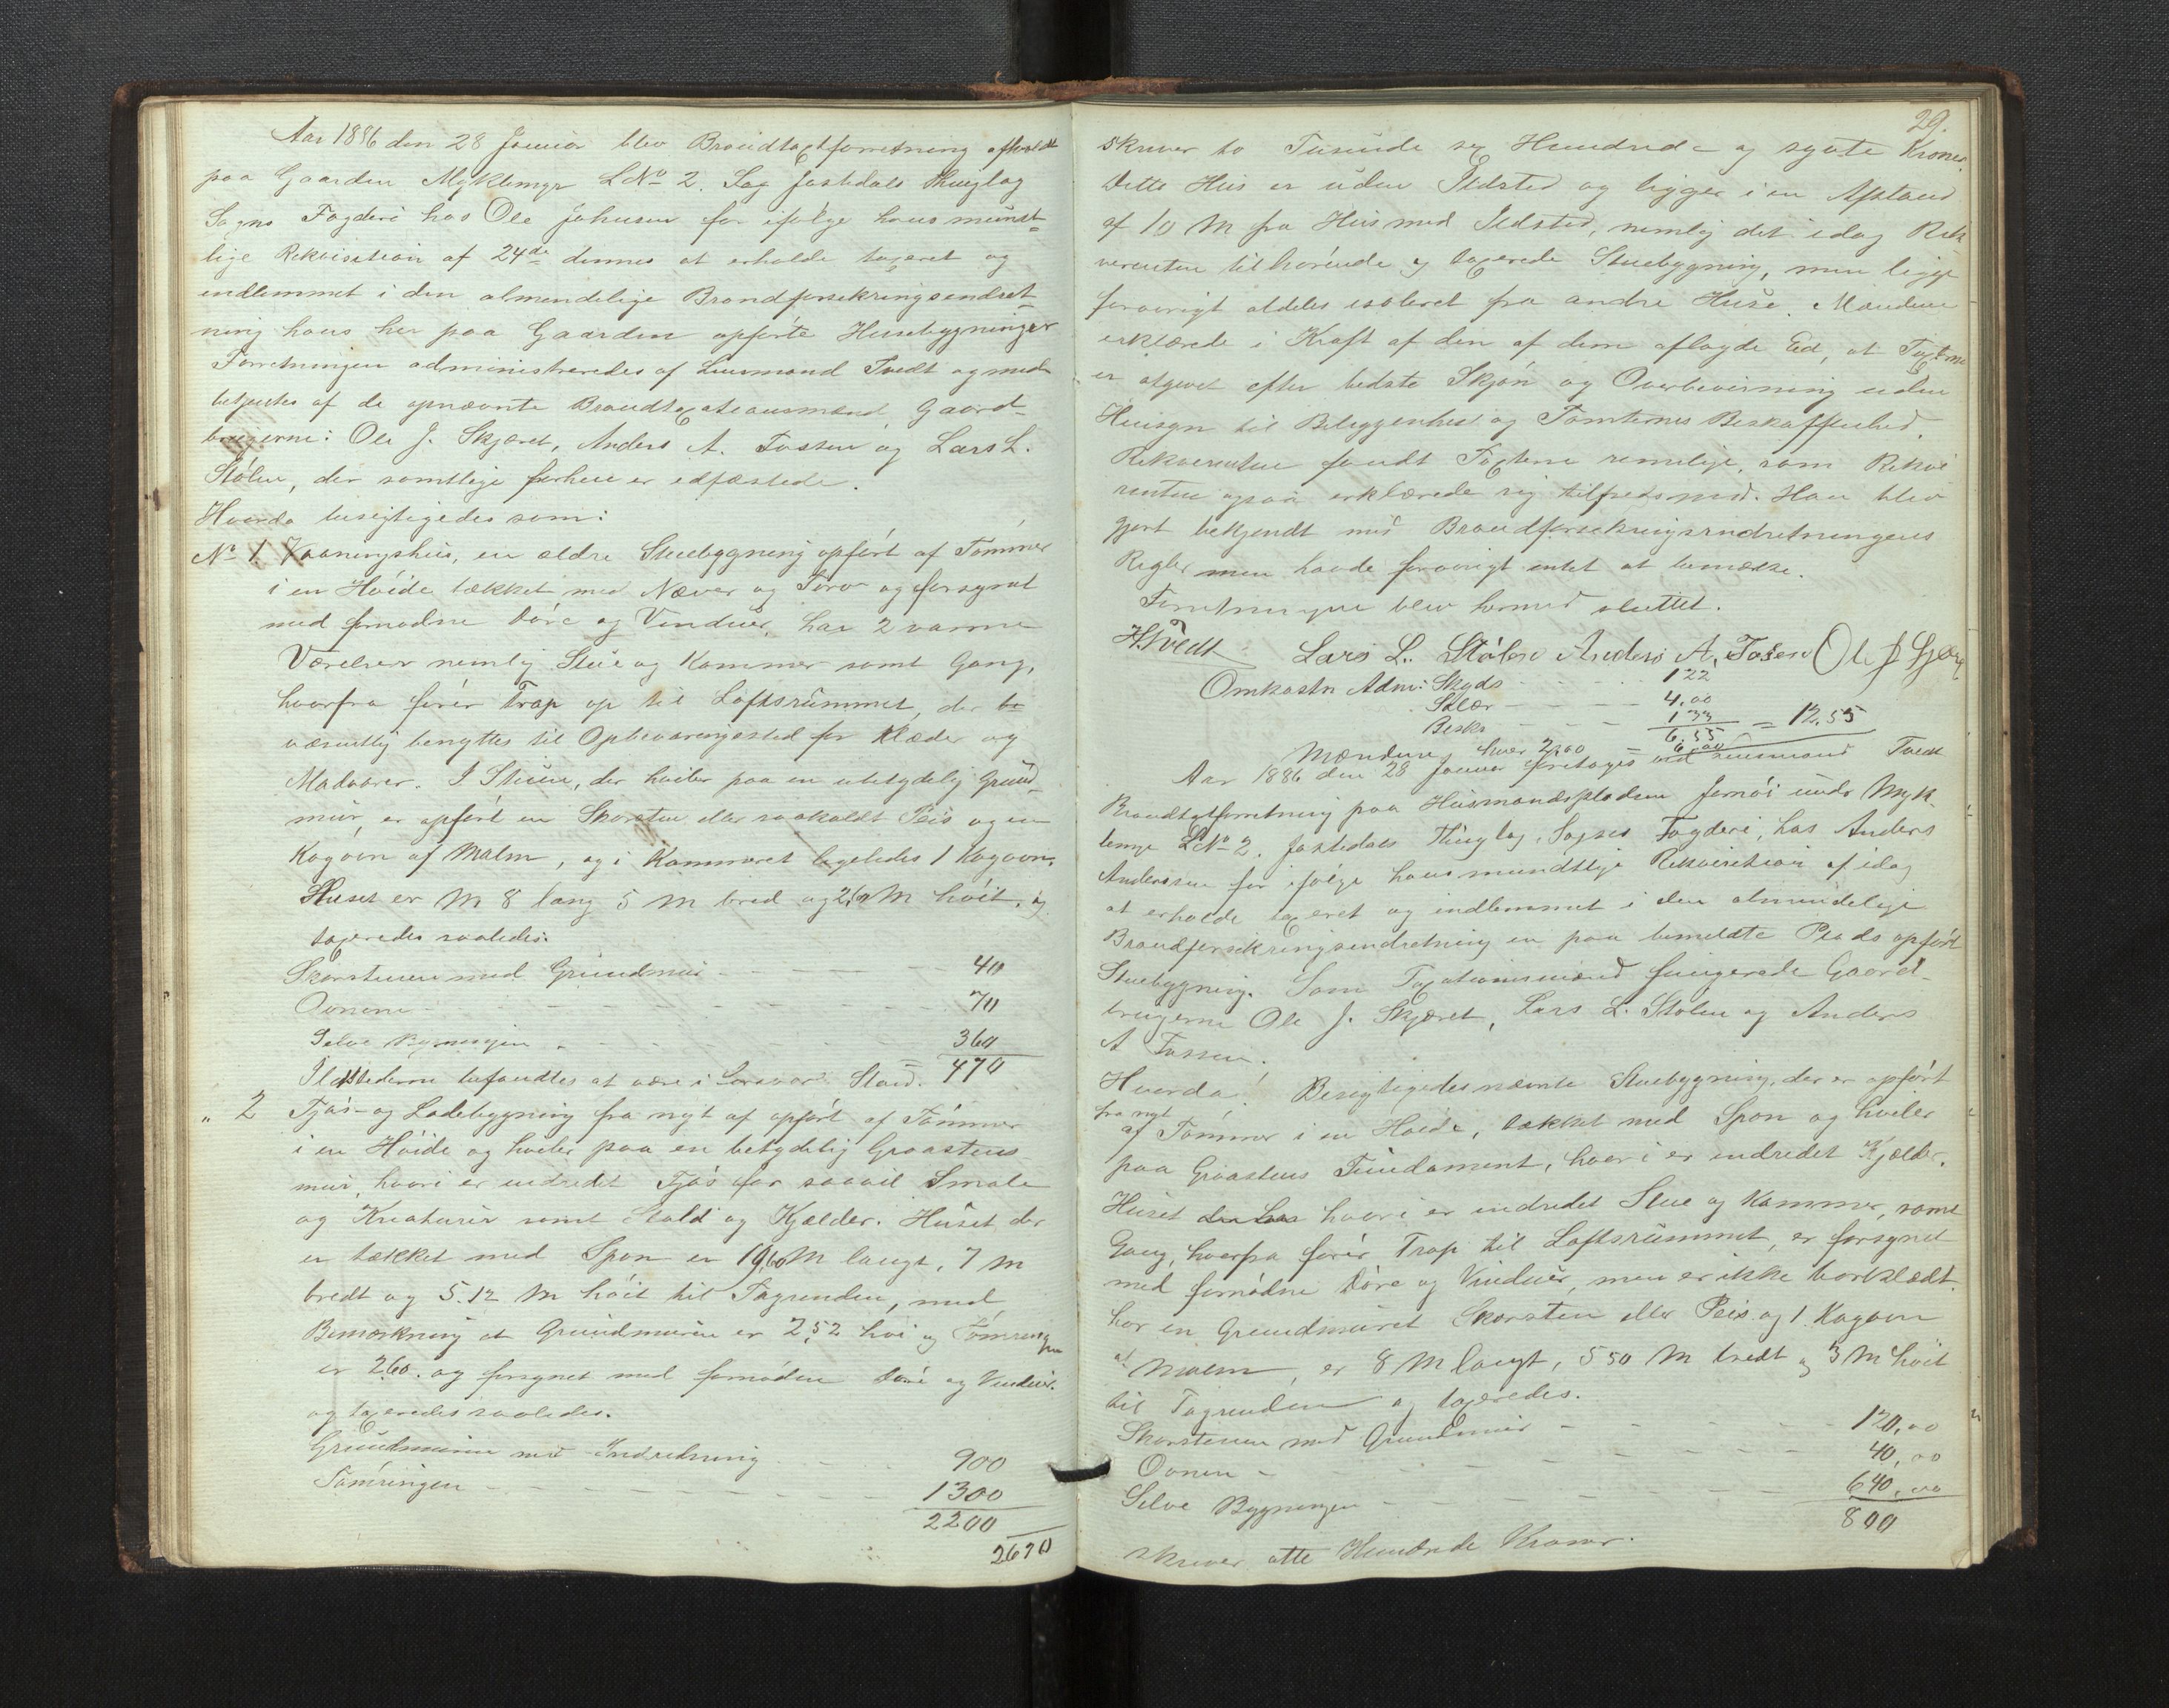 Aar 1886 den 28 Januar blev Brandtaxtforretning afholdt
paa Gaarden Myklemyr LNo 2. Sag Jostedals Thinglag
Sogns Fogderi hos Ole Johnsen for ifølge hans mundt=
lige Rekvisition af 24de dennes at erholde taxeret og
indlemmet i den almendelige Brandforsikringsendret
ning hans her paa Gaarden opførte Husebygninger
Forretningen administreredes af Lensmand Tvedt og med
betjentes af de opnævnte Brandtaxationsmænd Gaard-
brugerne: Ole J. Skjæret, Anders A. Fossen og Lars L.
Stølen, der samtlige forhen er edfæstede.
Hvorda besigtigedes som:
No 1. Vaaningshus, en ældre Stuebygning opført af Tømmer
i en Høide tækket med Næver og Torv og forsynet
med fornødne Døre og Vinduer, har 2 varme
Værelser nemlig Stue og Kammer samt Gang,
hvorfra fører Trap op til Loftsrummet, der be
væsentlig benyttes til Opbevaringssted for Klæder og
Madvarer. I Stuen, der hviler paa en ubetydelig Grund
mur, er opført en Skorsten eller saakaldt Peis og en
Kogovn af Malm, og i Kammeret ligeledes 1 Kogovn.
Huset er M 8 lang 5 M bred og 2,60 M høit, og
taxeredes saaledes:
Skorstenen med Grundmur - - - 40
Ovnene - - - 70
Selve Bygningen - - - 360
Ildstederne befandtes at være i forsvar. Stand. = 470
" 2 Fjøs- og Ladebygning fra nyt af opført af Tømmer
i en Høide og hviler paa en betydelig Graastens
mur, hvori er indredet Fjøs for saavel Smale
og Kreaturer samt Stald og Kjælder. Huset der
er tækket med Spon er 19,60 M langt, 7 M
bredt og 5.12 M høit til Tagrenden, med
Bemærkning at Grundmuren er 2,52 høi og Tømringen
er 2.60. og forsynet med fornødne Døre og Vinduer.
og taxeredes saaledes.
Grundmuren med Indredning - - - 900
Tømringen - - - 1300
2200
2670
29.
skriver to Tusinde sex Hundrede og sytte Kroner.
Dette Hus er uden Ildsted og ligger i en Afstand
af 10 M fra Hus med Ildsted, nemlig det idag Rek
verenten tilhørende og taxerede Stuebygning, men ligger
forøvrigt aldeles isoleret fra andre Huse. Mændene
erklærede i Kraft af den af dem aflagde Ed, at Taxterne
er afgivet efter bedste Skjøn og Overbevisning uden
Hensyn til Beliggenhed og Tomternes Beskaffenhed.
Rekverenten fandt Taxterne rimelige, som Rekvi
renten ogsaa erklærede sig tilfreds med. Han blev
gjort bekjendt med Brandforsikringsindretningens
Regler men havde forøvrigt intet at bemærke.
Forretningen blev hermed sluttet.
H.Tvedt Lars L. Stølen Anders A, Fosen Ole J Skjære
Omkostn Adm: Skyds - - - 122
Salær - - - 4.00
Besks - - - 1 33 = 12.55
6.55
Mændene, hver 2,00 = 6,00
Aar 1886 den 28 Januar foretoges ved Lensmand Tvedt
Brandtaxtforretning paa Husmandspladsen under Myk
lemyr LNo 2, Jostedals Thinglag, Sogns Fogderi, hos Anders
Anderssen for ifølge hans mundtlige Rekvisition af idag
at erholde taxeret og indlemmet i den almindelige
Brandforsikringsendretning en paa bemeldte Plads opført
Stuebygning. Som Taxationsmænd fungerede Gaard-
brugerne Ole J. Skjæret, Lars L. Stølen og Anders
A Fossen.
Hvorda! Besigtigedes nævnte Stuebygning, der er opført
fra nyt
af Tømmer i en Høide, tækket med Spon og hviler
paa Graastens Fundament, hvori er indredet Kjælder.
Huset der har hvori er indredet Stue og Kammer, samt
Gang, hvorfra fører Trap til Loftsrummet, er forsynet
med fornødne Døre og Vinduer, men er ikke bordklædt.
har en Grundmuret Skorsten eller Peis og 1 Kogovn
af Malm, er 8 M langt, 5 50 M bredt og 3 M høit
til Tagrenden og taxeredes.
Skorstenen med Grundmur - - - 120,00
Ovnen - - - 40,00
Selve Bygningen - - - 640,00
800
skriver otte Hundrede Kroner.